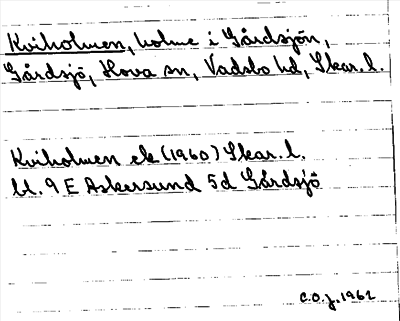 Kviholmen, holme i Gårdsjön,
Gårdsjö, Hova sn, Vadsbo hd, Skar. l.
Kviholmen ek (1960) Skar. l.
bl. 9 E Askersund 5d Gårdsjö
C.O.J. 1962